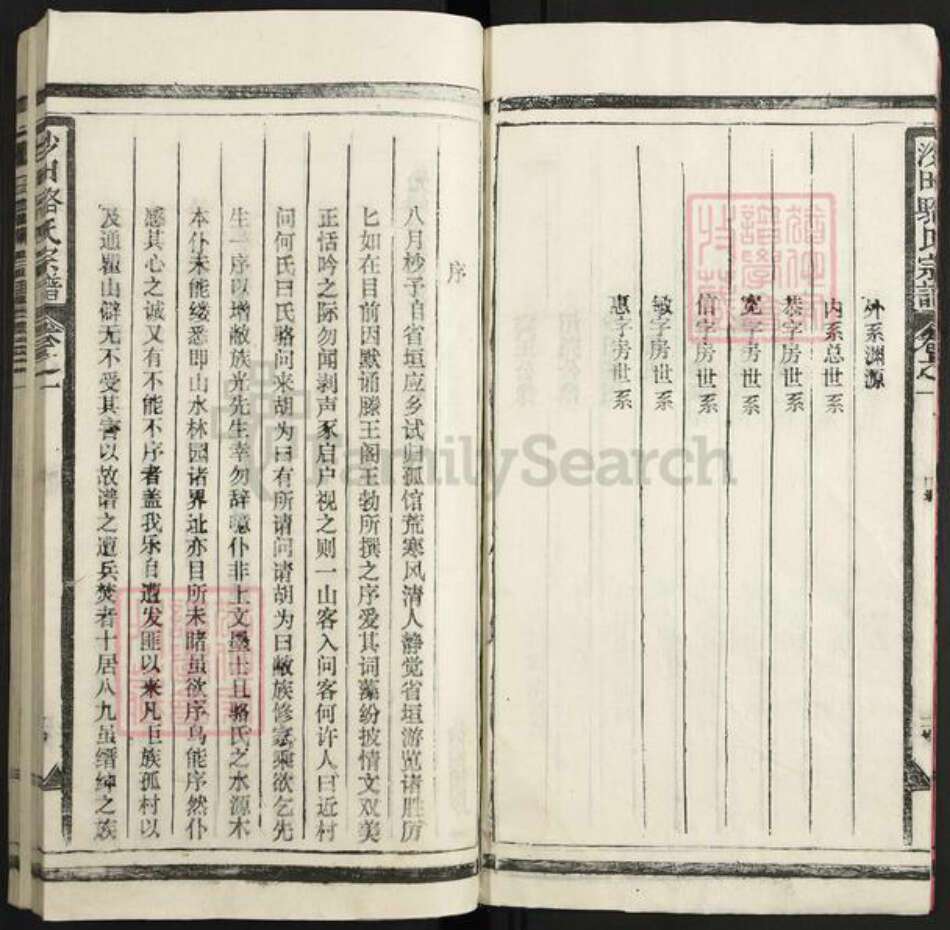 外系渊源
内系总世系
恭字房世系
宽字房世系
信字房世系
敏字房世系
惠字房世系
沙田骆氏宗谱
序
八月杪予自省垣应乡试归孤馆荒寒风清人静觉省垣游览诸胜历
匕如在目前因默诵滕王阁王勃所撰之序爱其词藻纷披情文双美
正恬吟之际勿闻剥声豕启户视之则一山客入问客何许人曰近村
问何氏曰氏骆问来胡为曰有所请问请胡为曰敝族修家乘欲乞先
生一序以增敝族光先生幸勿辞噫仆非上文墨士且骆氏之水源木
本仆未能缕悉即山水林园诸界址亦目所未睹虽欲序乌能序然仆
感其心之诚又有不能不序者盖我乐自遭发匪以来凡巨族孤村以
及通瞿山僻无不受其害以故谱之遭兵焚者十居八九虽缙绅之族
沙田骆氏宗谱
FamilySearch